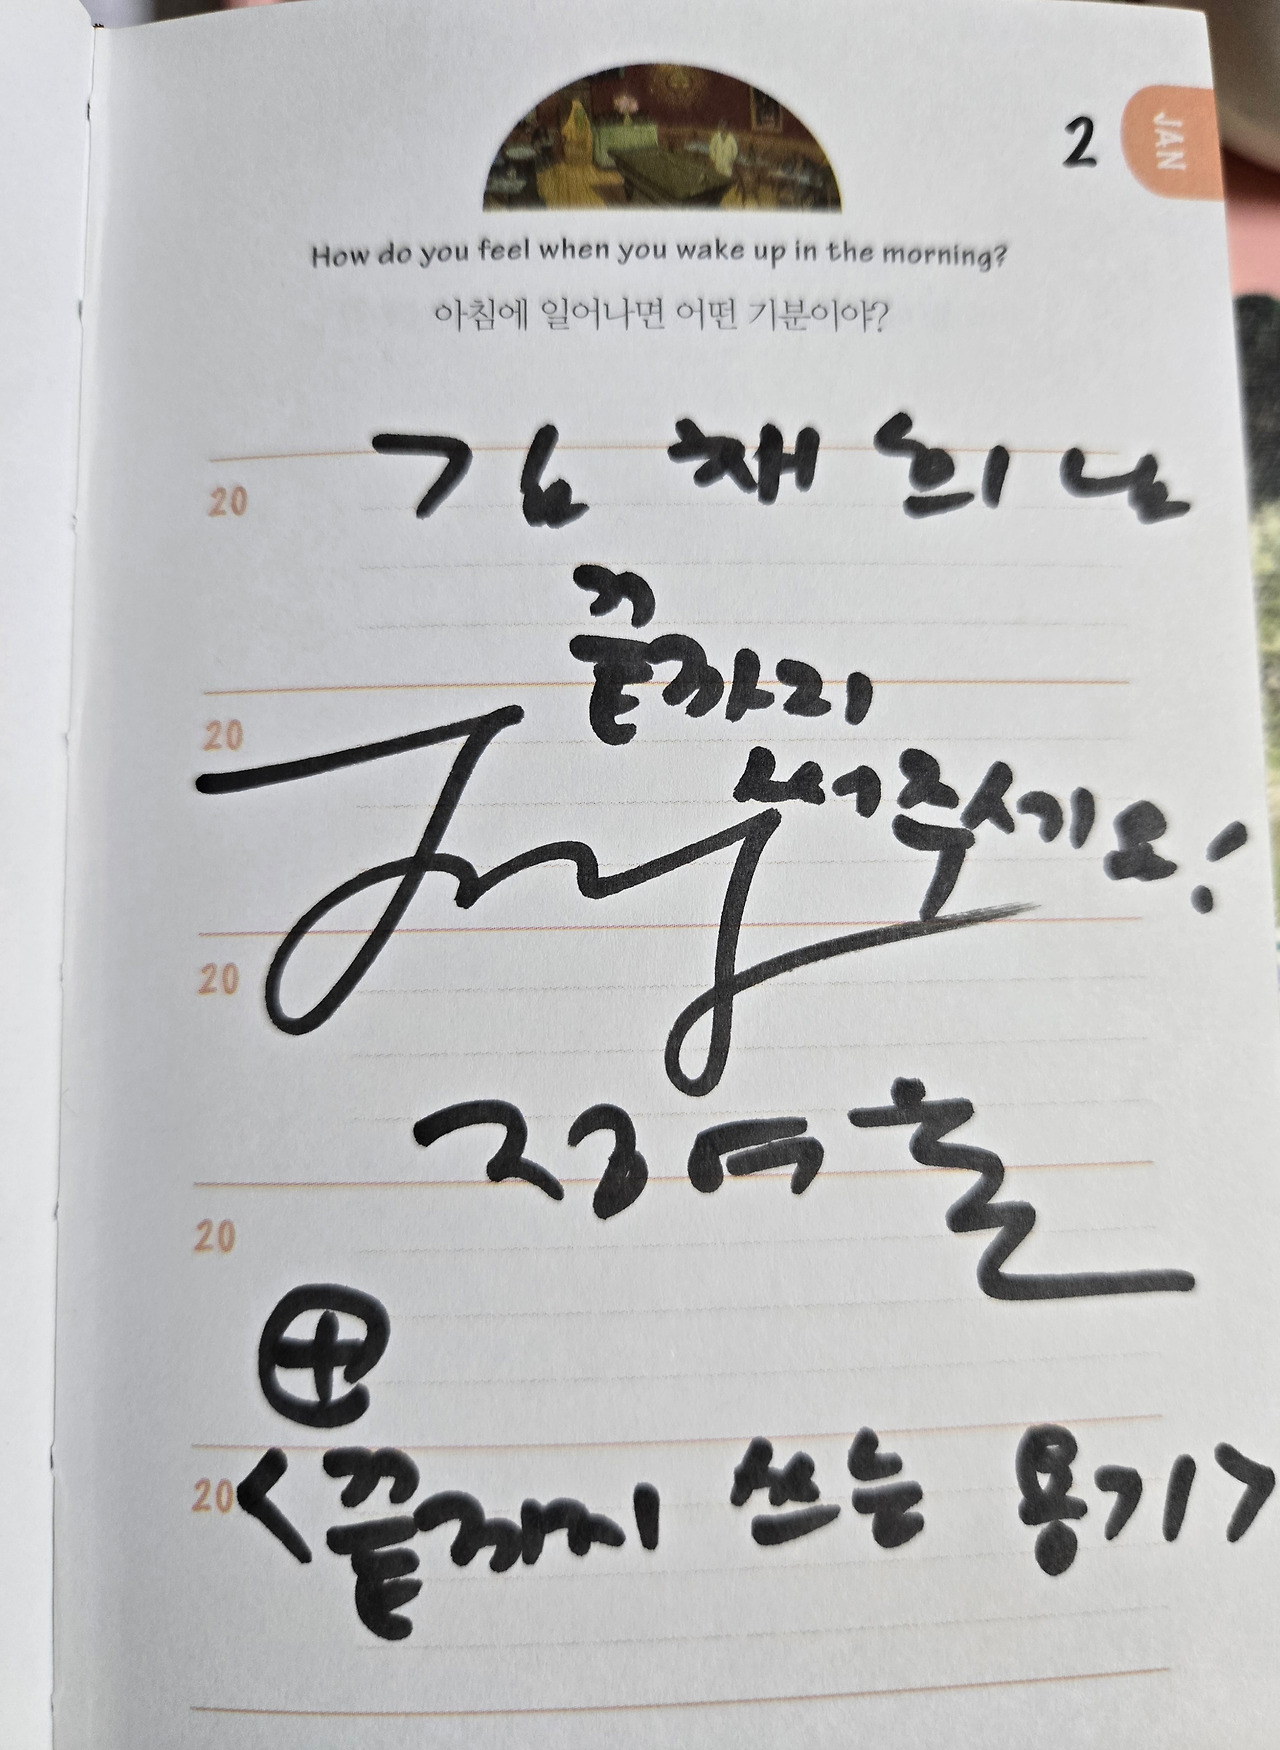 2
JAN
How do you feel when you wake up in the morning?
아침에 일어나면 어떤 기분이야?
20
김채희님
끝까지
20
써주세요!
20
정여울
20
20
<끝까지 쓰는 용기>